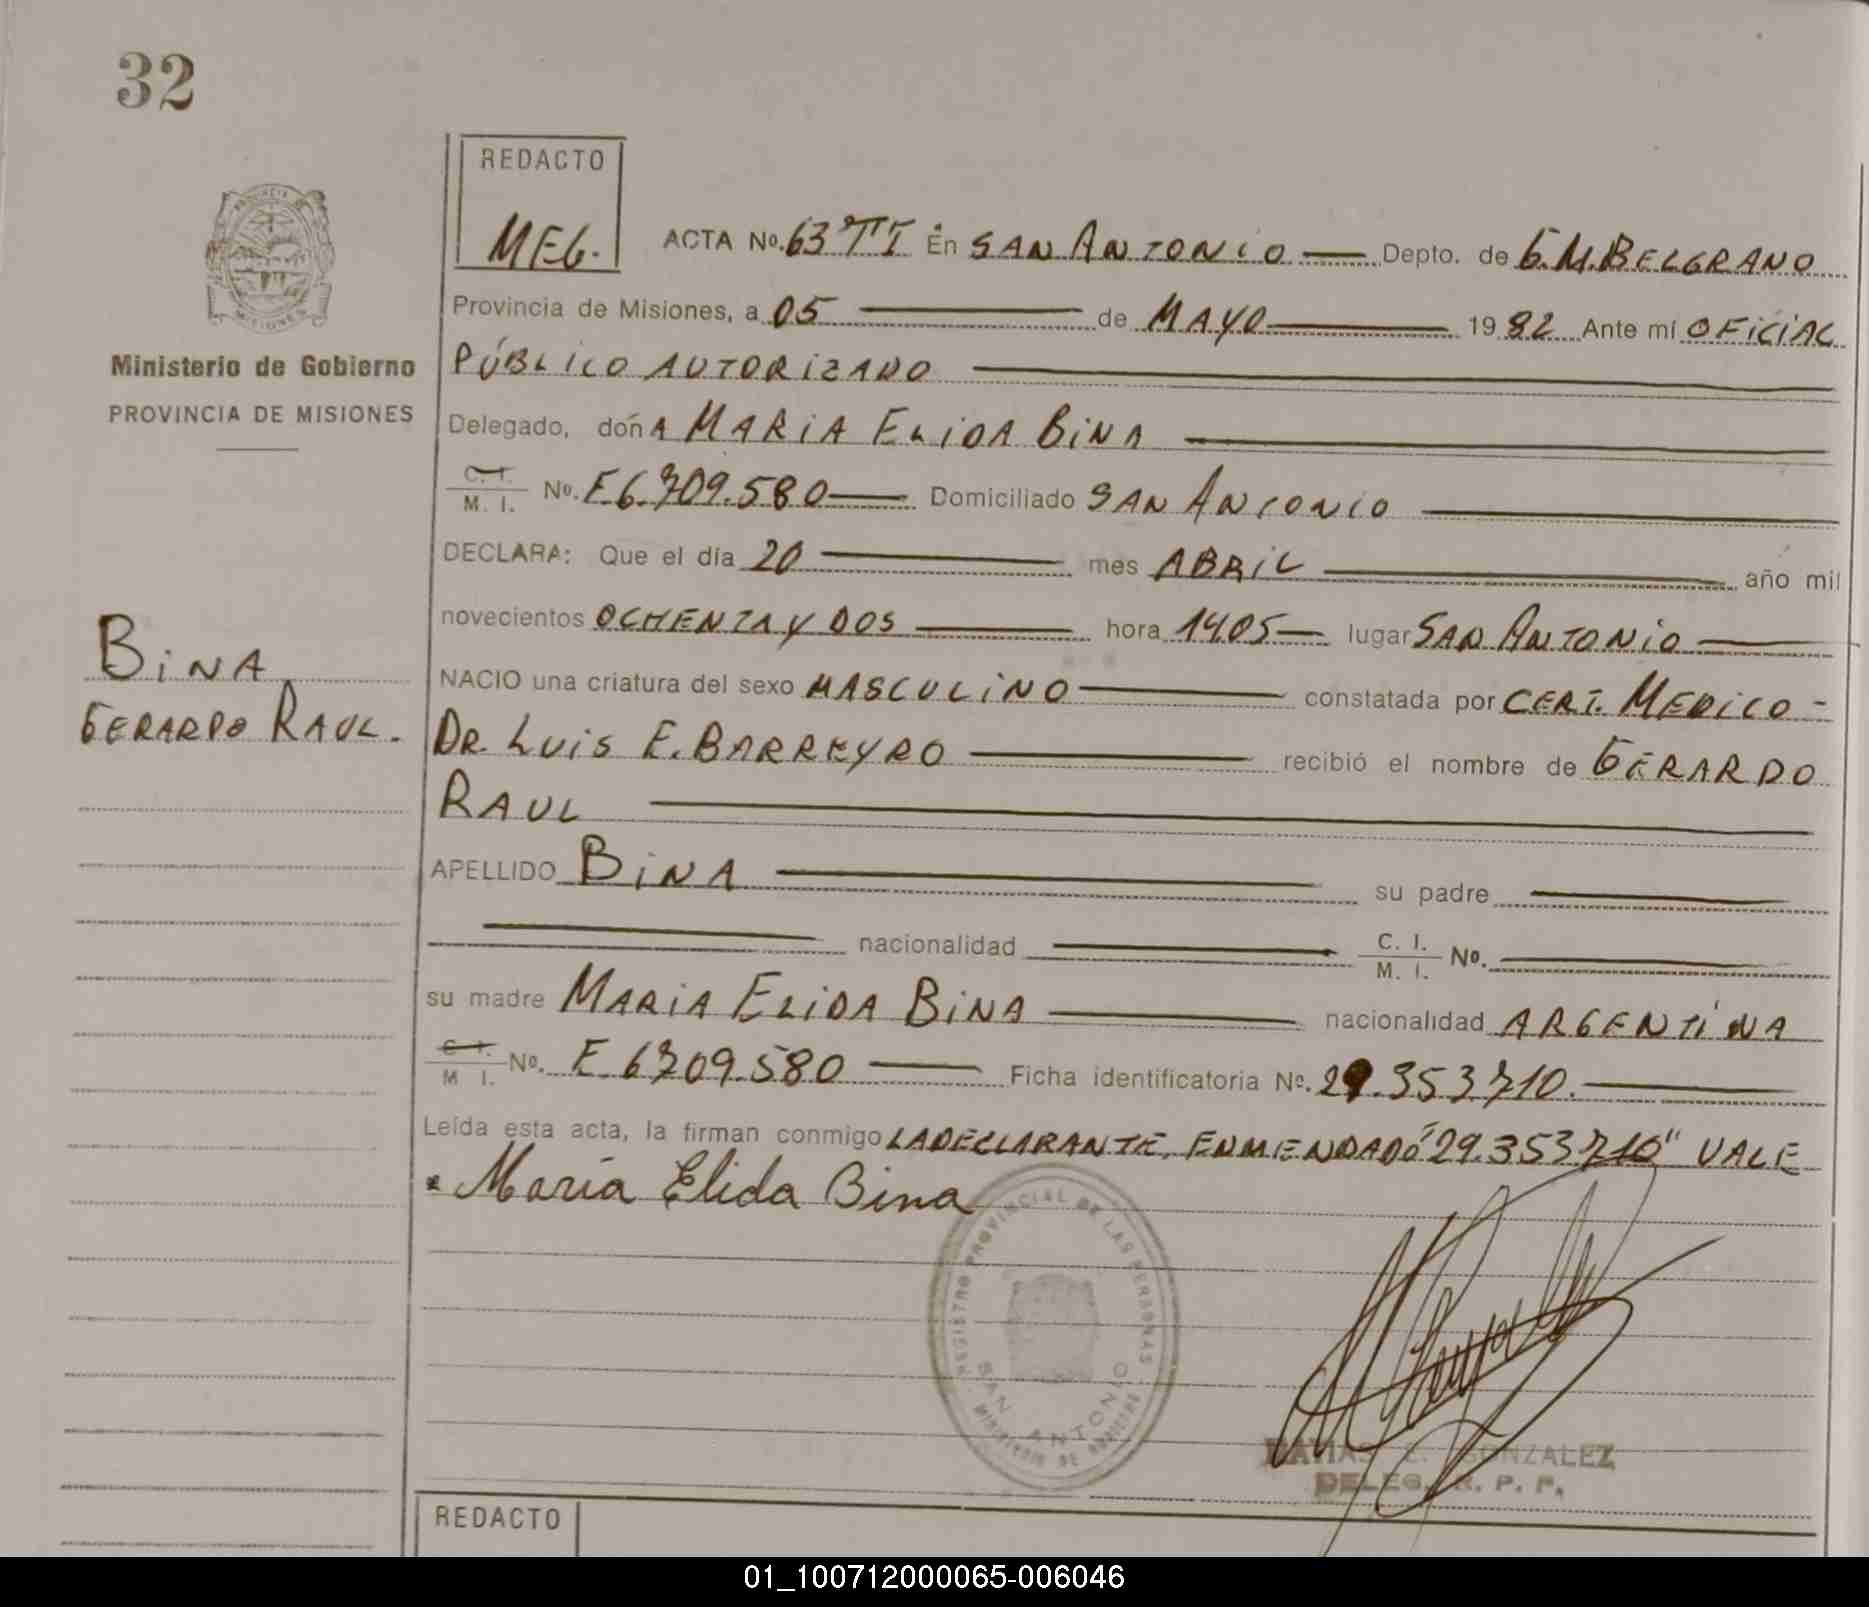 32
REDACTO
MEG.
ACTA Nº. 63 TI En SAN ANTONIO Depto. de G.M.BELGRANO
Provincia de Misiones, a 05 de MAYO 1982 Ante mí OFICIAL
PÚBLICO AUTORIZADO
Ministerio de Gobierno
PROVINCIA DE MISIONES
Delegado, donA MARIA ELIDA BINA
C. I. / M. I. Nº. F6.709.580 Domiciliado SAN ANTONIO
DECLARA: Que el día 20 mes ABRIL año mil
novecientos OCHENTA y DOS hora 1405 lugar SAN ANTONIO
BINA
GERARDO RAUL.
NACIO una criatura del sexo MASCULINO constatada por CERT. MEDICO -
DR. LUIS E. BARREYRO recibió el nombre de GERARDO
RAUL
APELLIDO BINA su padre
nacionalidad C. I. / M. I. Nº.
su madre MARIA ELIDA BINA nacionalidad ARGENTINA
C. I. / M. I. Nº. F. 6709.580 Ficha identificatoria Nº. 29.353710.
Leída esta acta, la firman conmigo LA DECLARANTE. ENMENDADO "29.353710" VALE
María Elida Bina
REGISTRO PROVINCIAL DE LAS PERSONAS
SAN ANTONIO
MINISTERIO DE
GONZALEZ
DELEG. R. P. P.
REDACTO
01_100712000065-006046